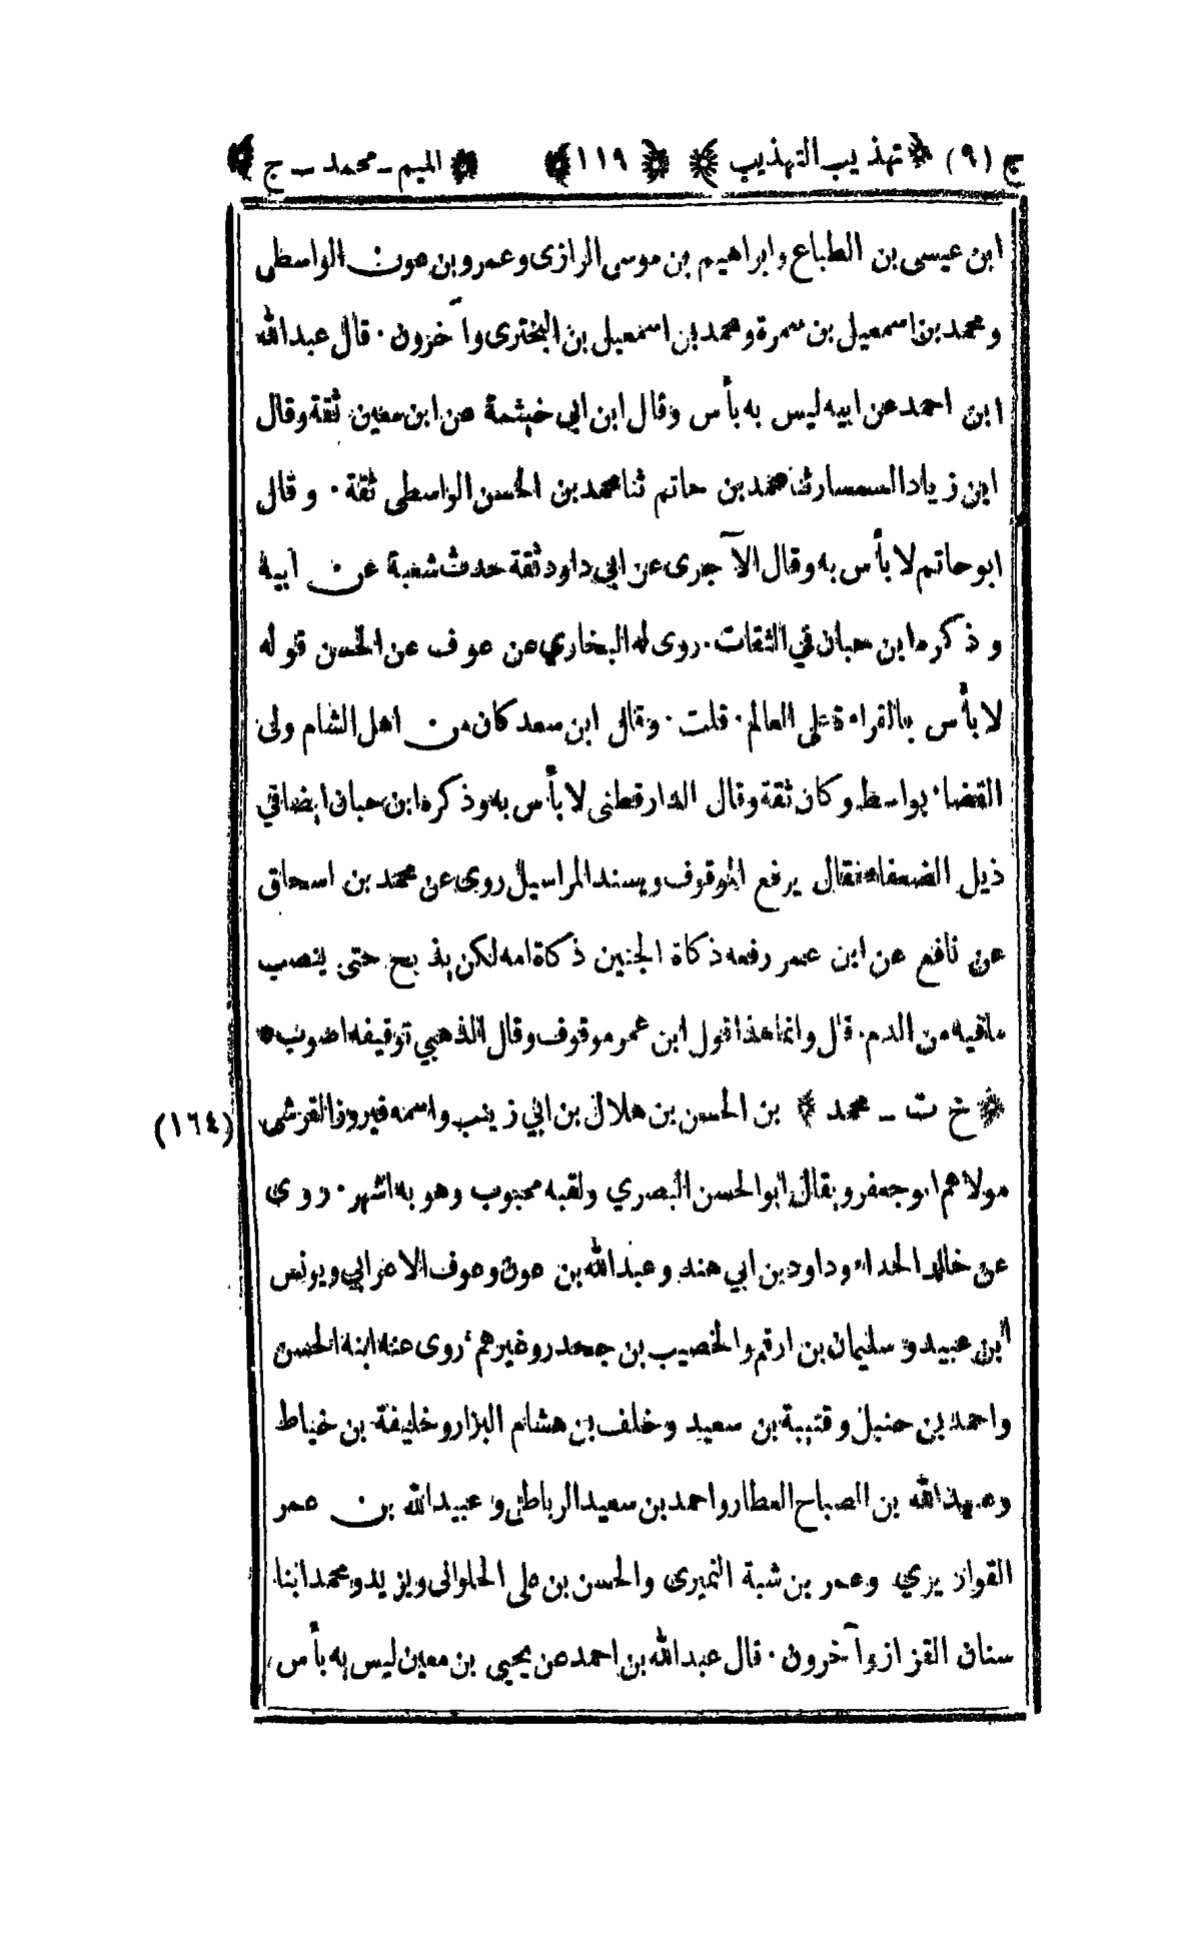 ج (٩) ﴿ تهذيب التهذيب ﴾ ﴿ ١١٩ ﴾ ﴿ الميم - محمد - ج ﴾
ابن عيسى بن الطباع وابراهيم بن موسى الرازى وعمرو بن عون الواسطى
ومحمد بن اسمعيل بن سمرة ومحمد بن اسمعيل بن البخترى وآخرون . قال عبدالله
ابن احمد عن ابيه ليس به بأس وقال ابن ابى خيثمة عن ابن معين ثقة وقال
ابن زياد السمسار ثنا محمد بن حاتم ثنا محمد بن الحسن الواسطى ثقة . وقال
ابو حاتم لا بأس به وقال الآجرى عن ابي داود ثقة حدث شعبة عن ابيه
وذكره ابن حبان في الثقات . روى له البخاري عن عوف عن الحسن قوله
لا بأس بالقراءة على العالم . قلت . وقال ابن سعد كان من اهل الشام ولى
القضاء بواسط وكان ثقة وقال الدارقطنى لا بأس به وذكره ابن حبان ايضا في
ذيل الضعفاء فقال يرفع الموقوف ويسند المراسيل روى عن محمد بن اسحاق
عن نافع عن ابن عمر رفعه ذكاة الجنين ذكاة امه لكن يذبح حتى ينصب
مافيه من الدم . قال وانما هذا قول ابن عمر موقوف وقال الذهبي توقيفه اصوب *
﴿ خ ت - محمد ﴾ بن الحسن بن هلال بن ابي زينب واسمه فيروز القرشى (١٦٤)
مولاهم ابو جعفر ويقال ابو الحسن البصري ولقبه محبوب وهو به اشهر . روى
عن خالد الحذاء وداود بن ابي هند وعبدالله بن عون وعوف الاعرابي ويونس
ابن عبيد و سليمان بن ارقم والخصيب بن جحدر وغيرهم ، روى عنه ابنه الحسن
واحمد بن حنبل وقتيبة بن سعيد وخلف بن هشام البزار وخليفة بن خياط
وعبدالله بن الصباح العطار واحمد بن سعيد الرباطى و عبيدالله بن عمر
القواريري وعمر بن شبة النميرى والحسن بن على الحلوانى ويزيد ومحمد ابنا
سنان القزاز وآخرون . قال عبدالله بن احمد عن يحيى بن معين ليس به بأس ،